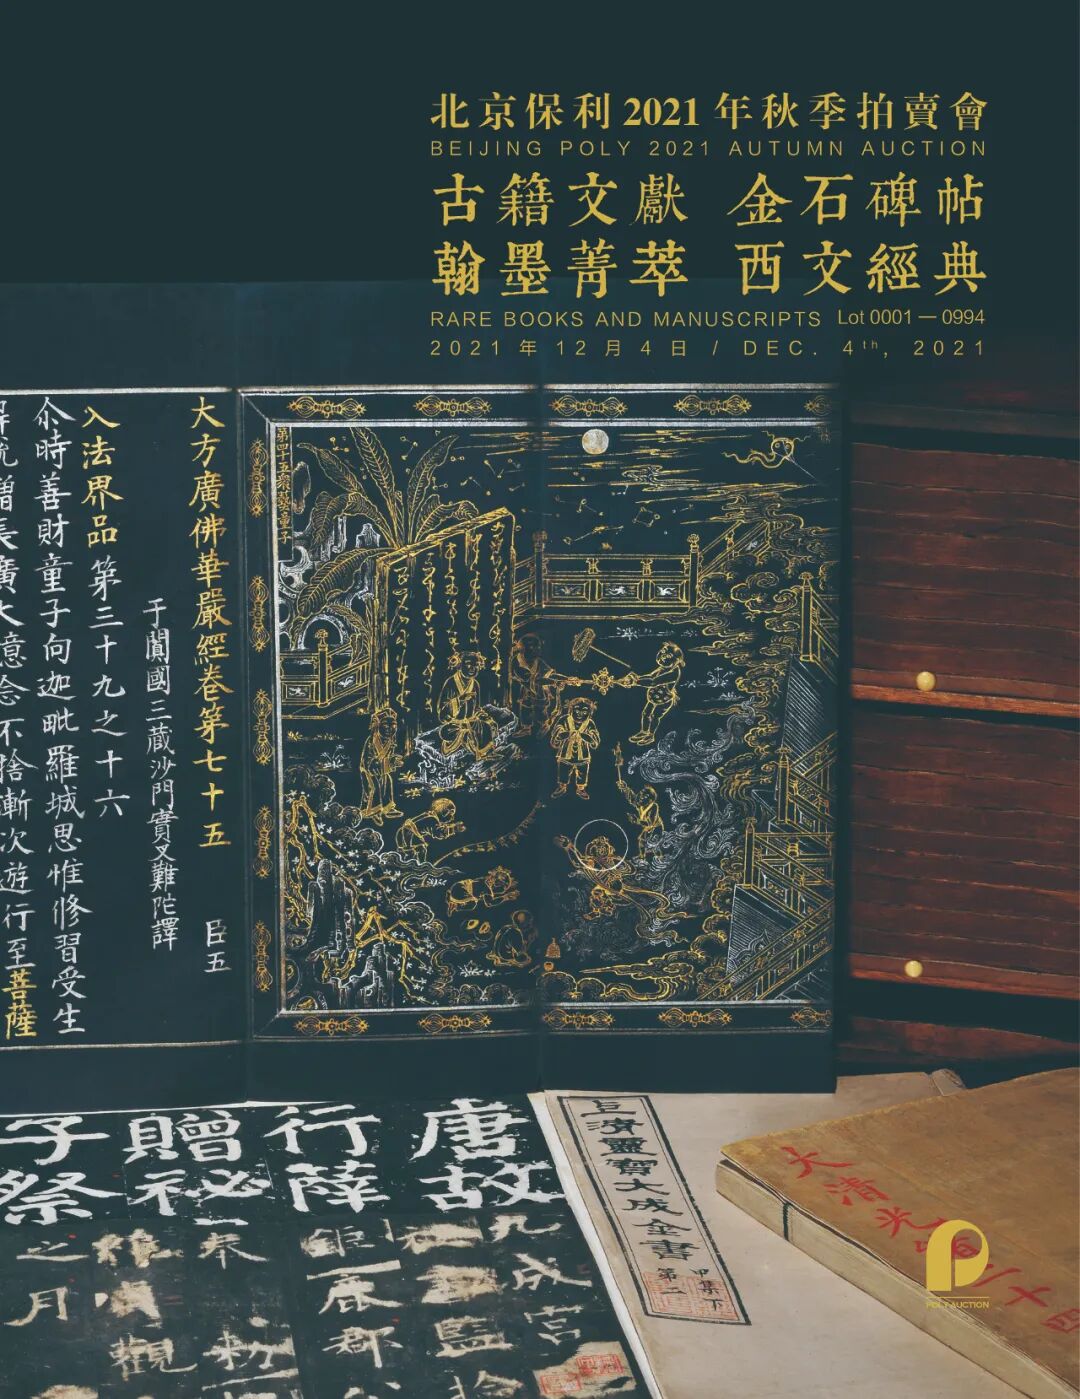 北京保利2021年秋季拍賣會
BEIJING POLY 2021 AUTUMN AUCTION
古籍文獻 金石碑帖
翰墨菁萃 西文經典
RARE BOOKS AND MANUSCRIPTS Lot 0001 — 0994
2021年12月4日 / DEC. 4th, 2021
大方廣佛華嚴經卷第七十五 臣五
于闐國三藏沙門實叉難陀譯
入法界品第三十九之十六
尒時善財童子向迦毗羅城思惟修習受生
解脫增長廣大意念不捨漸次遊行至菩薩
第四十五眾藝童子
唐故
行薛
贈祕
子祭
九成宮
醴
之月
觀
郡公
監
靈寶大成金書
甲集下
第二
大清光
二十四
POLY AUCTION